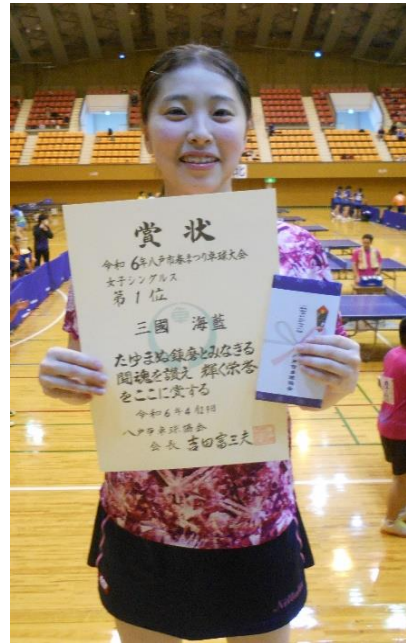 賞状
令和6年八戸市春まつり卓球大会
女子シングルス
第1位
三國 海藍
たゆまぬ錬磨とみなぎる
闘魂を讃え 輝く栄誉
をここに賞する
八戸市卓球協会
会長 吉田富三夫